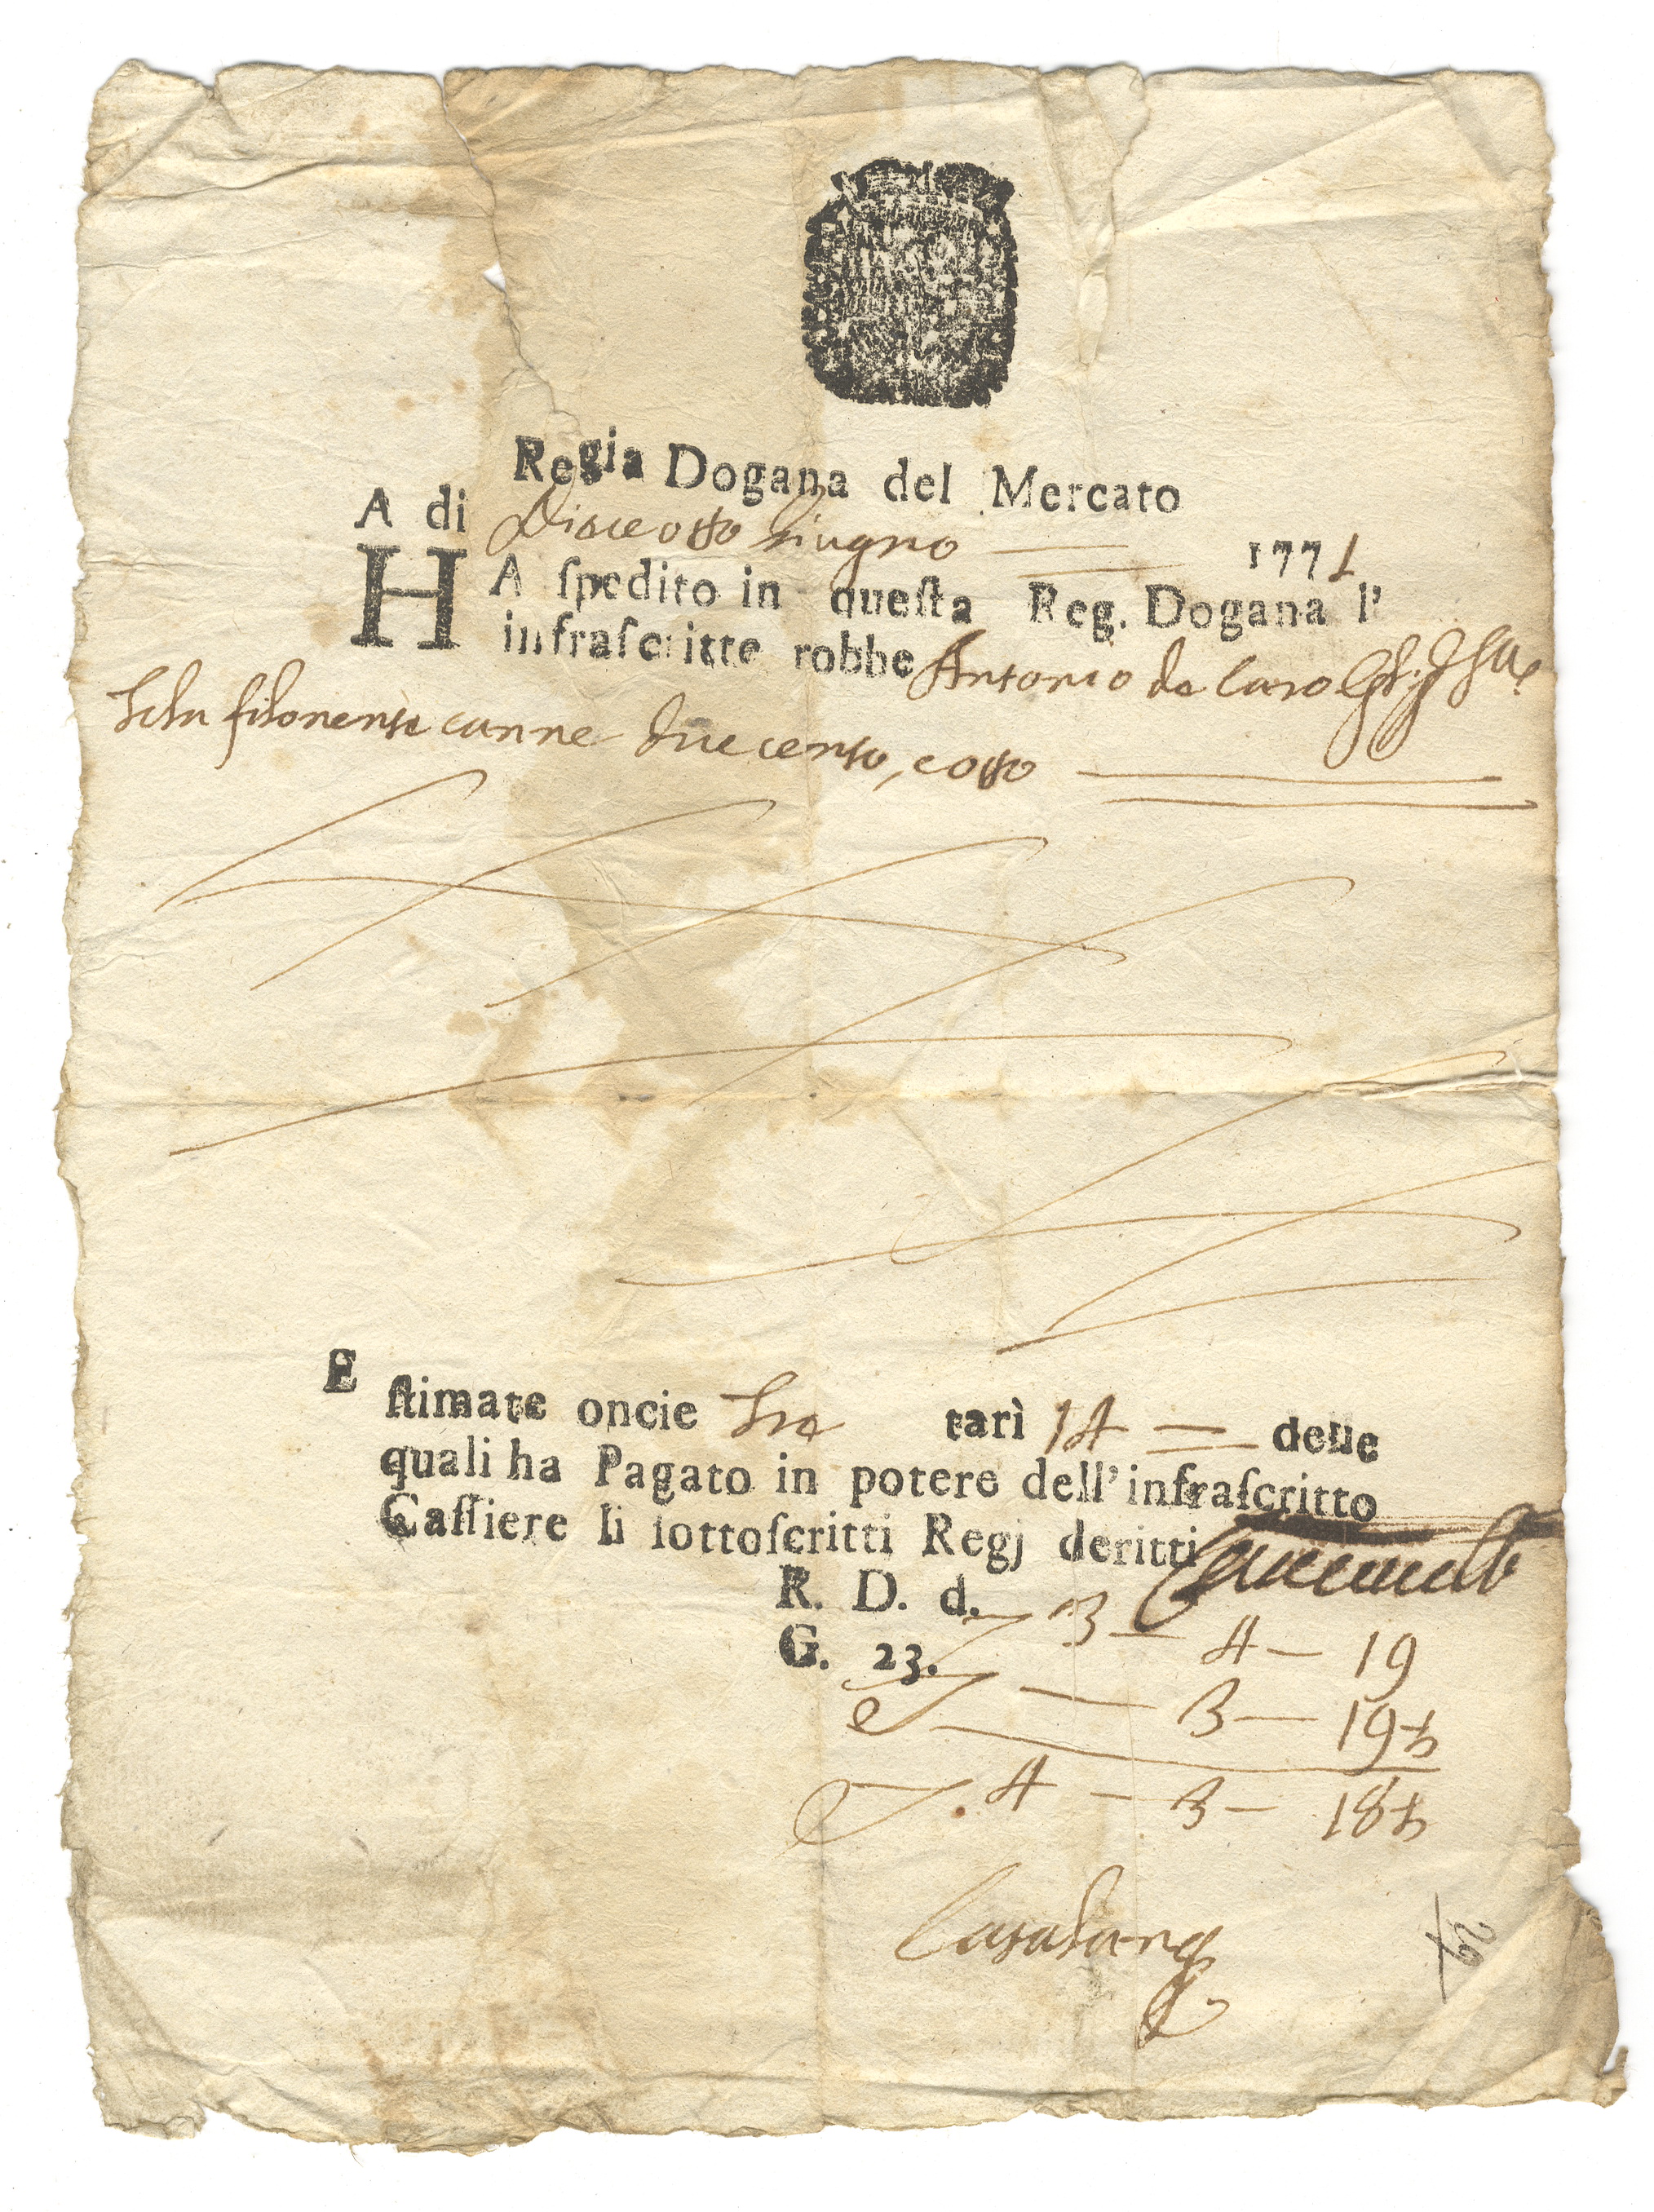 Regia Dogana del Mercato
A di Diece otto Giugno 1771
HA ſpedito in queſta Reg. Dogana l'
infraſcritte robbe Antonio de Caro
canne duecento, e otto
E
ſtimate oncie tre tarì 14 — delle
quali ha Pagato in potere dell'infraſcritto
Caſſiere li ſottoſcritti Regj deritti
R. D. d. 3 — 4 — 19
G. 23. — 3 — 19
4 — 3 — 18